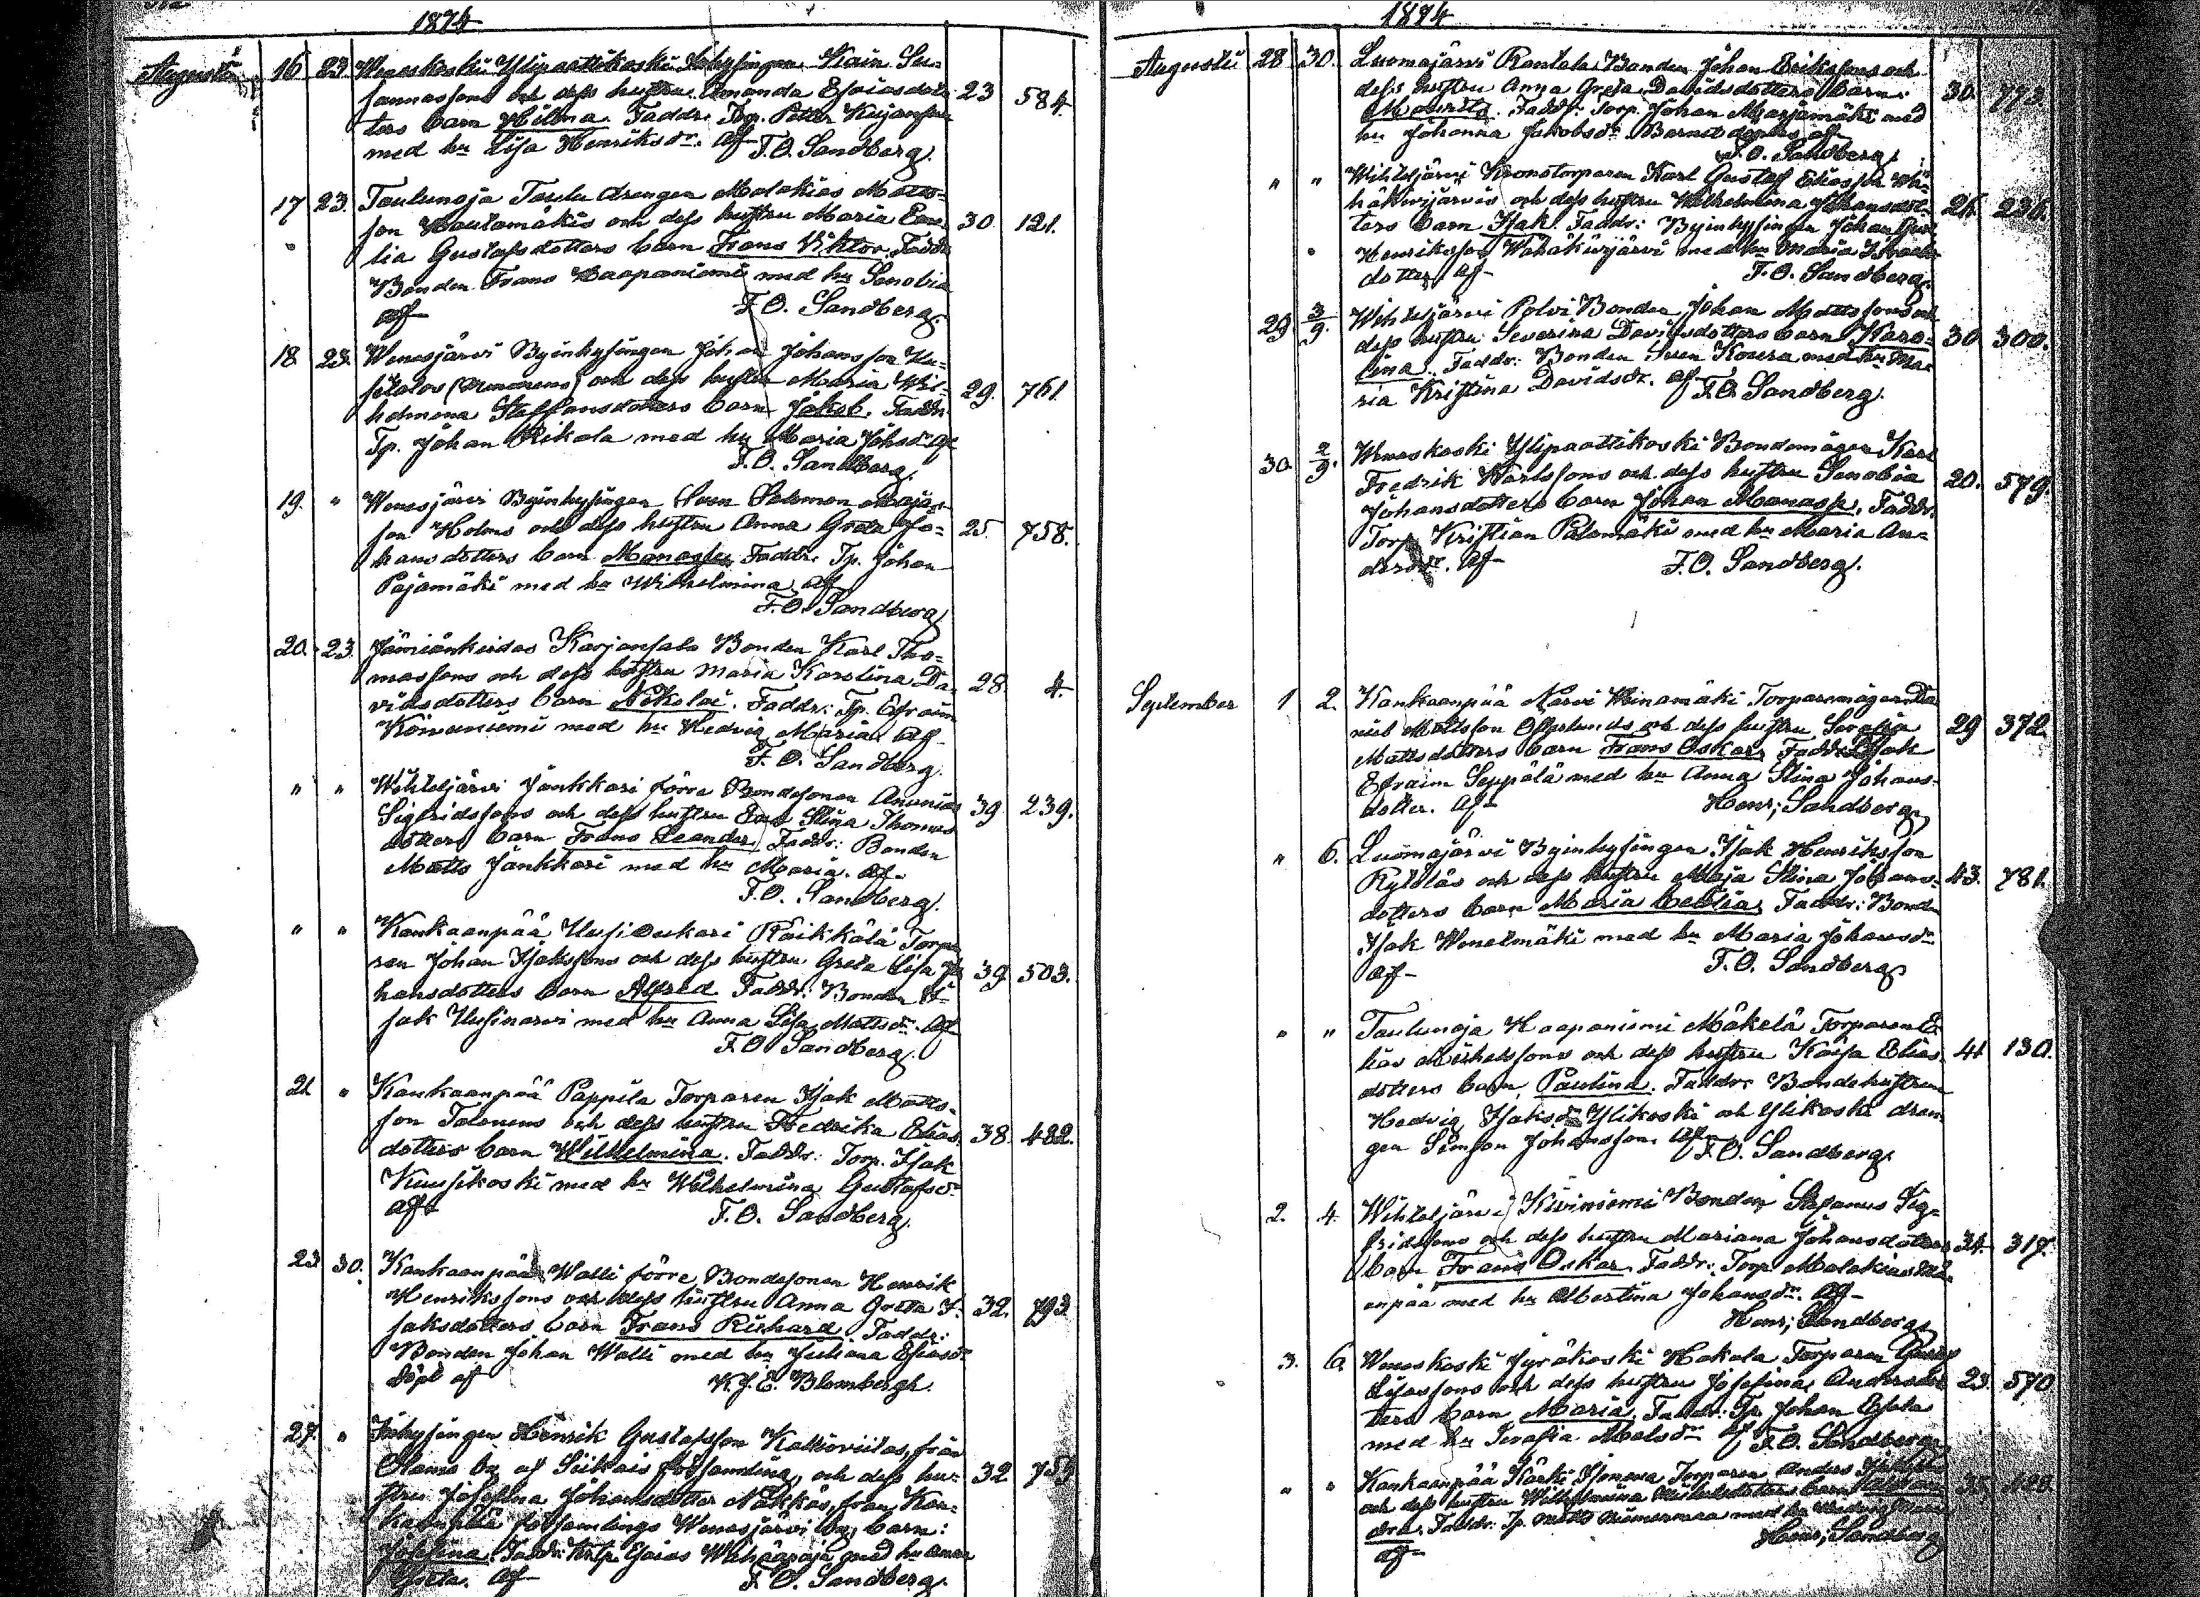 1874
Augusti 16 23. Weneskoski Ylipaattikoski Inhysingen Kain Su-
sannassons och dess hustru Amanda Esaiasdot- 23 584.
ters barn Hilma. Faddr: Torp. Petter Kujansuu
med hu Lisa Henriksdr. af F. O. Sandberg.
17 23. Taulunoja Taulu drengen Malakias Matts-
son Hautamäkis och dess hustru Maria Eme- 30. 121.
lia Gustafsdotters barn Frans Viktor. Faddr
Bonden Frans Haapaniemi med hu Senobia
af F. O. Sandberg.
18 23. Wenesjärvi Byinhysingen Johan Johansson Uu-
sitalos och dess hustru Maria Wil- 29. 761
helmina Staffansdotters barn Jakob. Faddr
Tp. Johan Rikala med hu Maria Johsdr af
F. O. Sandberg.
19. " Wenesjärvi Byinhysingen Sven Salomon
son Holms och dess hustru Anna Greta Jo- 25. 758.
hansdotters barn Manasse. Faddr. Tp. Johan
Pajamäki med hu Wilhelmina af
F. O. Sandberg
20. 23. Jämiänkeidas Karjansalo Bonden Karl Tho-
massons och dess hustru Maria Karolina Da- 28. 4.
vidsdotters barn Nikolai. Faddr: Tp. Efraim
Koivuniemi med hu Hedvig Maria. af
F. O. Sandberg.
" " Wihteljärvi Jänkkari förre Bondesonen Ananias 39 239.
Sigfridssons och dess hustru Eva Stina Thomas
dotters barn Frans Leander. Faddr: Bonden
Matts Jänkkari med hu Maria. af
F. O. Sandberg.
" " Kankaanpää Uusi Raikkälä Torpa
ren Johan Isakssons och dess hustru Greta Lisa Jo 39 503.
hansdotters barn Alfred. Faddr: Bonden I-
sak Uusinarvi med hu Anna Lisa Mattsdr. af
F. O. Sandberg.
21 " Kankaanpää Pappila Torparen Isak Matts-
son Talonens och dess hustru Fredrika Elias 38. 482.
dotters barn Wilhelmina. Faddr: Torp. Isak
Kuusikoski med hu Wilhelmina Gustafsdr
af F. O. Sandberg.
23 30. Kankaanpää Walli förre Bondesonen Henrik
Henrikssons och dess hustru Anna Greta I- 32. 793
saksdotters barn Frans Richard. Faddr:
Bonden Johan Walli med hu Juliana Esiasdr
döpt af K. J. E. Blombergh.
27. " Inhysingen Henrik Gustafsson Kalliovitas, från
Otamo by af Siikais församling, och dess hu- 32. 759
stru Josefina Johansdotter Näkkäs, från Kan-
kaanpää församlings Wenesjärvi by, barn:
Josefina. Faddr: Esaias Wähäaoja med hu Anna
Greta. af F. O. Sandberg.
1874
Augusti 28 30. Luomajärvi Rantala Bonden Johan Erikssons och
dess hustru Anna Greta Davidsdotters barn 30. 773.
Mauritz. Faddr. Torp. Johan Marjamäki med
hu Johanna Jakobsdr. Barnet döptes af
F. O. Sandberg.
" " Wihteljärvi Kronotorparen Karl Gustaf Eliasson Wä-
häkivijärvis och dess hustru Wilhelmina Johansdot- 26. 236.
ters barn Isak. Faddr: Byinhysingen Johan
Henriksson Wähäkivijärvi med hu Maria
dotter af F. O. Sandberg.
29 3/9. Wihteljärvi Polvi Bonden Johan Mattssons och
dess hustru Severina Davidsdotters barn Karo- 30 300.
lina. Faddr: Bonden Sven Koura med hu Ma-
ria Kristina Davidsdr. af F. O. Sandberg.
30. 2/9. Weneskoski Ylipaattikoski Bondemågen Karl
Fredrik Karlssons och dess hustru Senobia 20. 579.
Johansdotters barn Johan Manasse. Faddr:
Torp. Kristian Palomäki med hu Maria An-
dersdr. af F. O. Sandberg.
September 1 2. Kankaanpää Narvi Weinamäki Torparemågen Da
niel Mattsson Österlunds och dess hustru Serafia 29 372.
Mattsdotters barn Frans Oskar. Faddr: Isak
Efraim Seppälä med hu Anna Stina Johans-
dotter. af Henr; Sandberg
" 6. Luomajärvi Byinhysingen Isak Henriksson
Kyllläs och dess hustru Maja Stina Johans- 43. 781.
dotters barn Maria Cecilia. Faddr: Bonden
Isak Wenelmäki med hu Maria Johansdr
af F. O. Sandberg
" " Taulunoja Haapaniemi Mäkelä Torparen E-
lias Mickelssons och dess hustru Kaisa Elias 41 130.
dotters barn Paulina. Faddr: Bondehustrun
Hedvig Isaksdr Ylikoski och Ylikoski dren-
gen Simson Johansson. af F. O. Sandberg.
2. 4 Wihteljärvi Kiviniemi Bonden Stefanus Sig-
fridssons och dess hustru Mariana Johansdotters 34 317.
barn Frans Oskar. Faddr: Torp Malakias
enpää med hu Albertina Johansdr. af
Henr; Sandberg
3. 6. Weneskoski Jyräkoski Hakala Torparen
Esaiassons och dess hustru Josefina Andersdot 23. 570
ters barn Maria. Faddr: Tp. Johan Esala
med hu Serafia Matsdr af F. O. Sandberg.
" " Kankaanpää Karki Torparen Anders
och dess hustru Wilhelmina dotters barn 35.
Faddr: Tp. Matts Niinenmaa med hu Hedvig Maria
af Henr; Sandberg